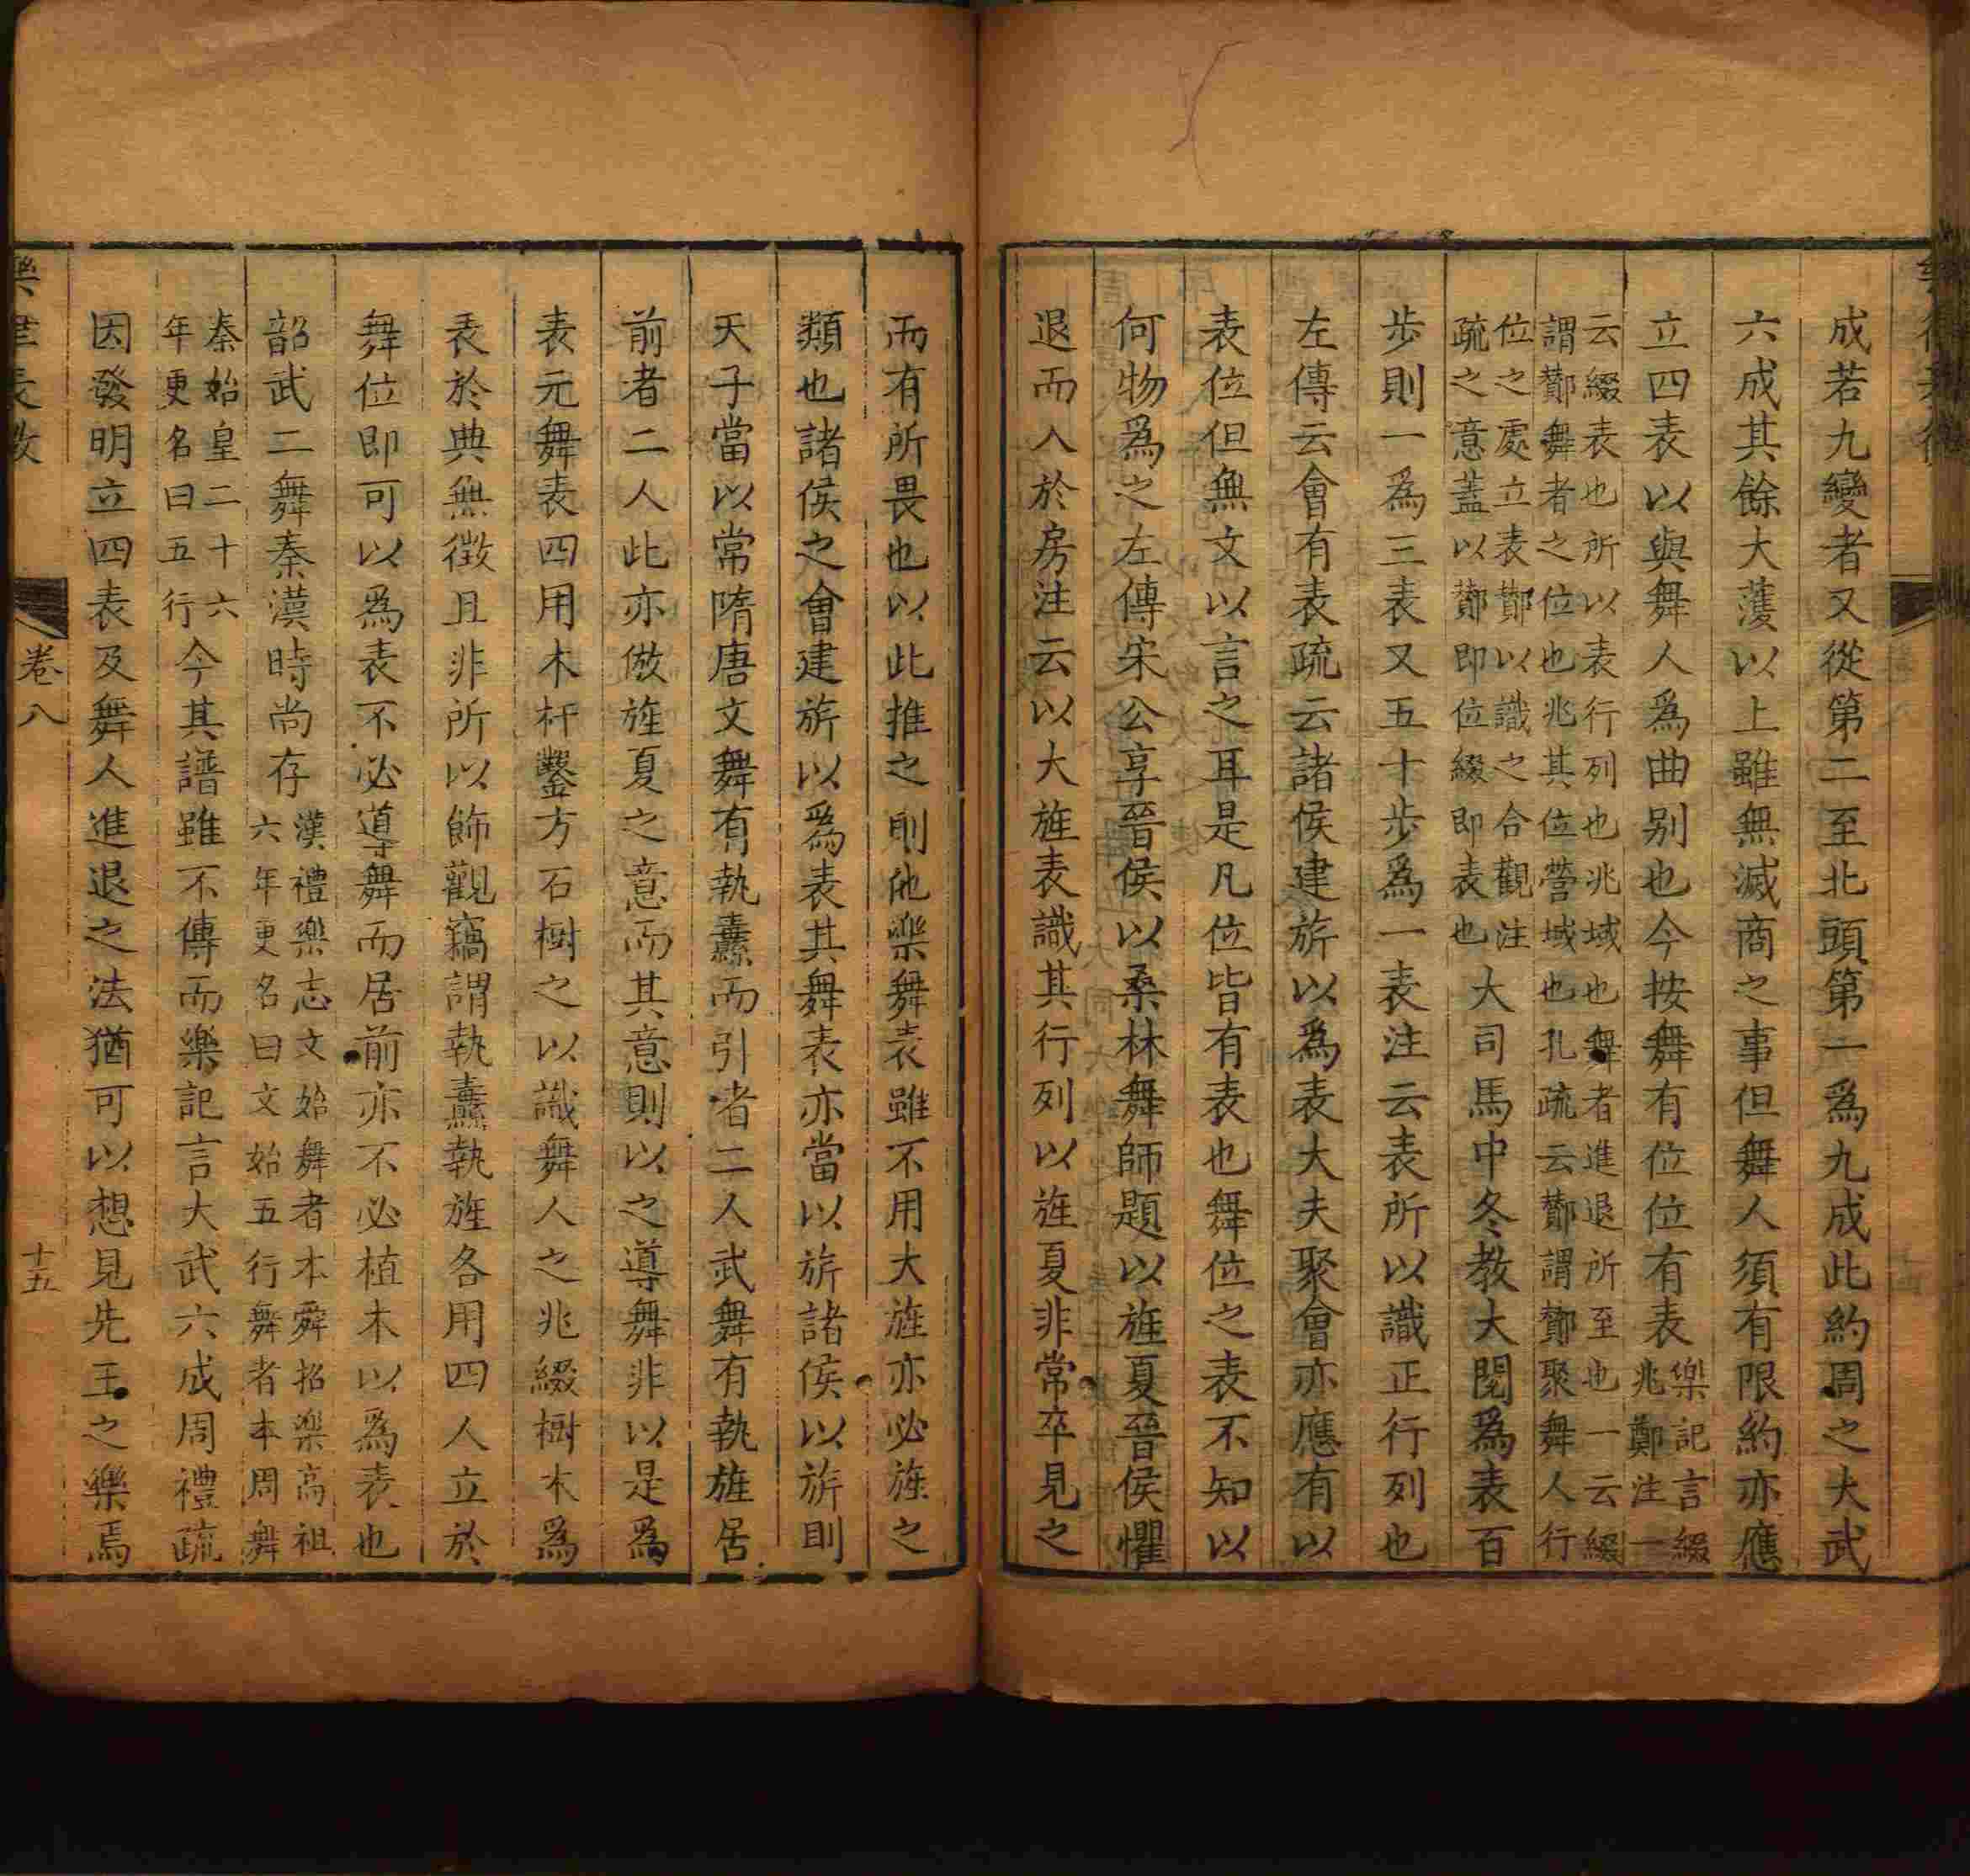 成若九變者又從第二至北頭第一爲九成此約周之大武
六成其餘大濩以上雖無滅商之事但舞人須有限約亦應
立四表以與舞人爲曲别也今按舞有位位有表樂記言綴
兆鄭注一
云綴表也所以表行列也兆域也舞者進退所至也一云綴
謂酇舞者之位也兆其位營域也孔疏云酇謂酇聚舞人行
位之處立表酇以識之合觀注
疏之意蓋以酇即位綴即表也大司馬中冬教大閱爲表百
步則一爲三表又五十步爲一表注云表所以識正行列也
左傳云會有表疏云諸侯建旂以爲表大夫聚會亦應有以
表位但無文以言之耳是凡位皆有表也舞位之表不知以
何物爲之左傳宋公享晉侯以桑林舞師題以旌夏晉侯懼
退而入於房注云以大旌表識其行列以旌夏非常卒見之
而有所畏也以此推之則他樂舞表雖不用大旌亦必旌之
類也諸侯之會建旂以爲表其舞表亦當以旂諸侯以旂則
天子當以常隋唐文舞有執纛而引者二人武舞有執旌居
前者二人此亦倣旌夏之意而其意則以之導舞非以是爲
表元舞表四用木杆鑿方石樹之以識舞人之兆綴樹木爲
表於典無徵且非所以飾觀竊謂執纛執旌各用四人立於
舞位即可以爲表不必導舞而居前亦不必植木以爲表也
韶武二舞秦漢時尚存漢禮樂志文始舞者本舜招樂高祖
六年更名曰文始五行舞者本周舞
秦始皇二十六
年更名曰五行今其譜雖不傳而樂記言大武六成周禮疏
因發明立四表及舞人進退之法猶可以想見先王之樂焉
卷八
十五